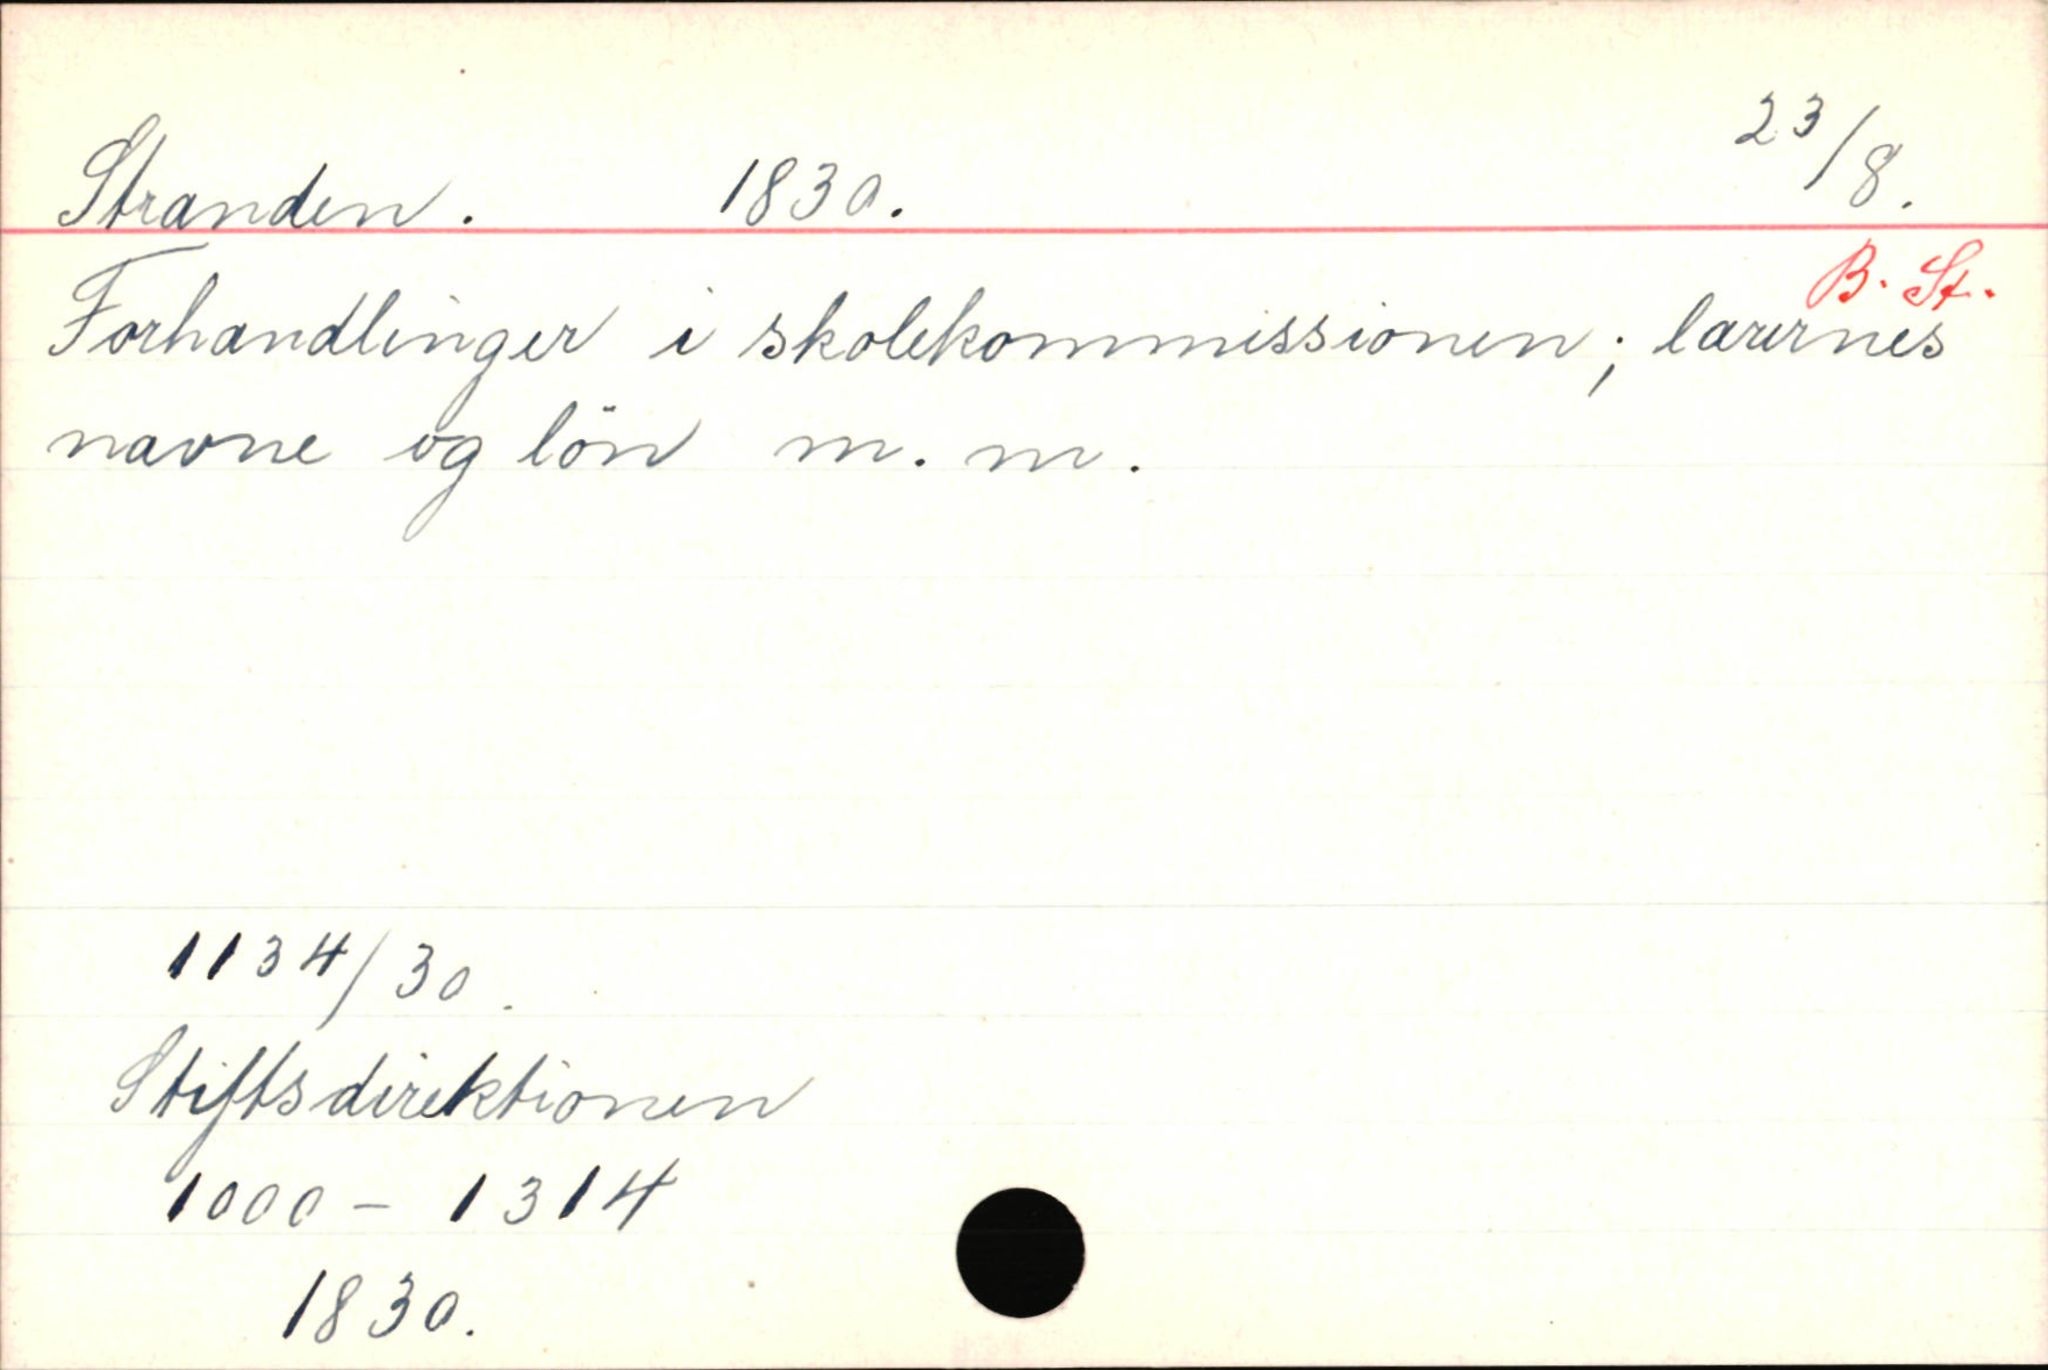 Stranden. 1830. 23/8.
B. St.
Forhandlinger i skolekommissionen; lærernes
navne og lön m. m.
1134/30.
Stiftsdirektionen
1000 - 1314
1830.